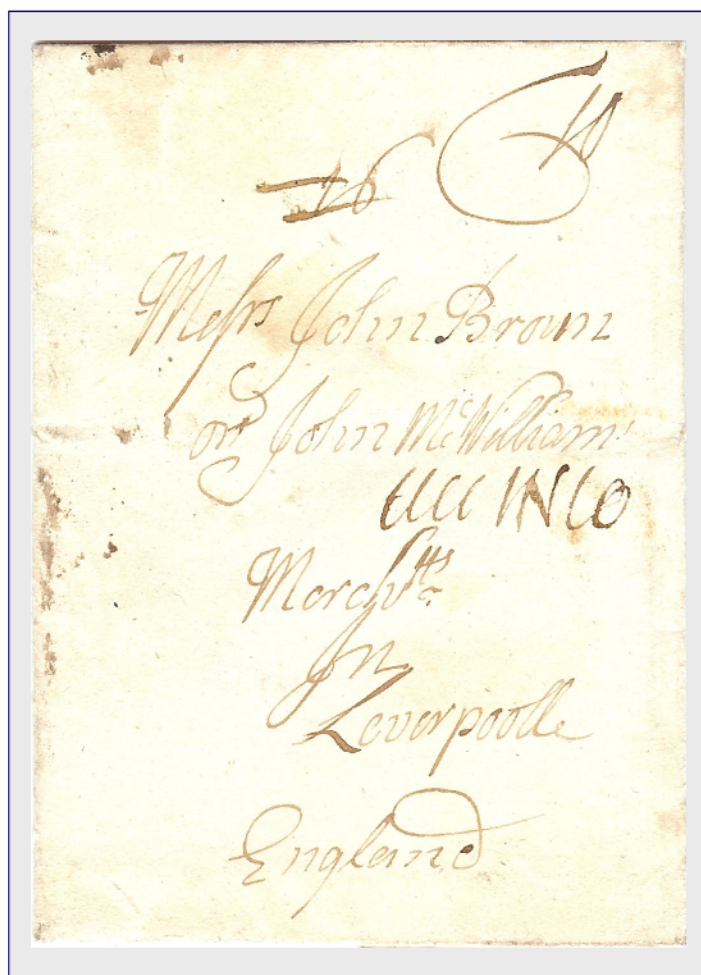 16
Messrs John Broun
or John McWilliam
IN 10
Merchtts
In
Leverpoolle
England